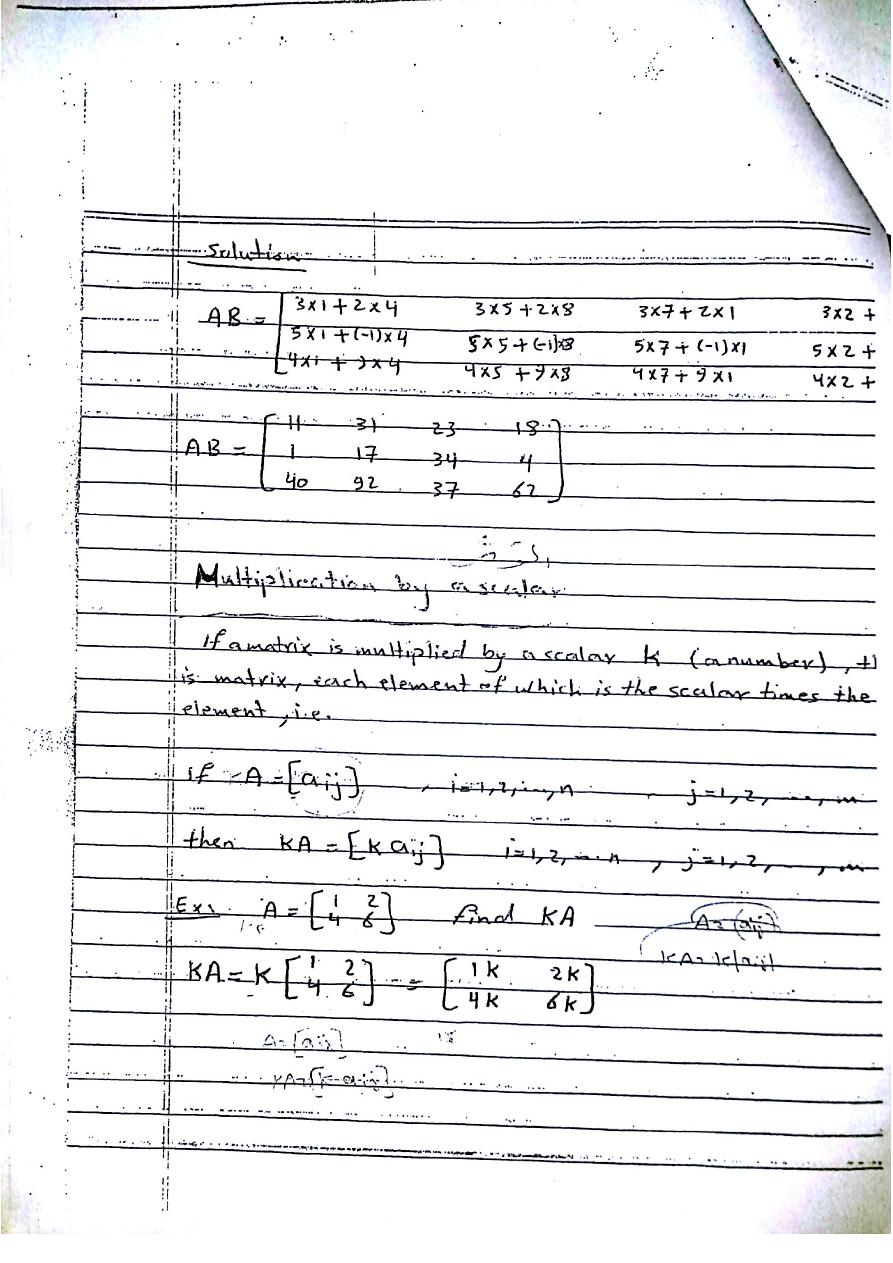 Solution
AB = [ 3x1+2x4 3x5+2x8 3x7+2x1 3x2+
5x1+(-1)x4 5x5+(-1)x8 5x7+(-1)x1 5x2+
4x1+9x4 4x5+9x8 4x7+9x1 4x2+
AB = [ 11 31 23 18 ]
1 17 34 4
40 92 37 62
Multiplication by a scalar
If a matrix is multiplied by a scalar K (a number),
is matrix, each element of which is the scalar times the
element, i.e.
if A = [aij] , i=1,2,...,n , j=1,2, ...., m
then KA = [K aij] i=1,2,...n , j=1,2, , m
Ex: A = [ 1 2 4 6 ] find KA
A = (aij)
KA = K [ 1 2 4 6 ] = [ 1K 2K 4K 6K ]
KA = K[aij]
A = [aij]
KA = [K aij]